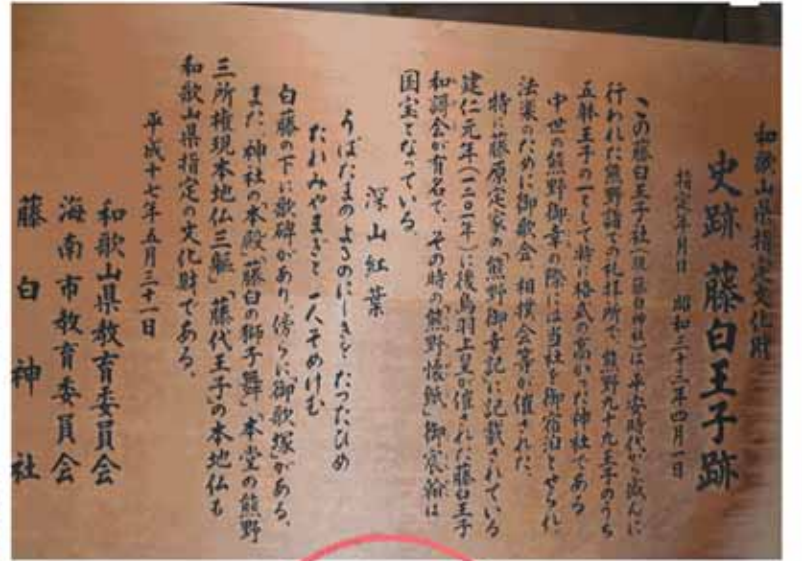 和歌山県指定文化財
史跡 藤白王子跡
指定年月日 昭和三十三年四月一日
この藤白王子社(現 藤白神社)は平安時代から盛んに
行われた熊野詣での礼拝所で、熊野九十九王子のうち
五躰王子の一として特に格式の高かった神社である
中世の熊野御幸の際には当社を御宿泊とせられ
法楽のために御歌会、相撲会等が催された、
特に藤原定家の「熊野御幸記」に記載されている
建仁元年(一二〇一年)に後鳥羽上皇が催された藤白王子
和謌会が有名で、その時の「熊野懐紙」御宸翰は
国宝となっている。
深山紅葉
うばたまのよるのにしきを たつたひめ
たれみやまぎと 一人そめけむ
白藤の下に歌碑があり、傍らに「御歌塚」がある、
また、神社の本殿「藤白の獅子舞」「本堂の熊野
三所権現本地仏三躯」「藤代王子」の本地仏も
和歌山県指定の文化財である。
平成十七年五月三十一日
和歌山県教育委員会
海南市教育委員会
藤白神社